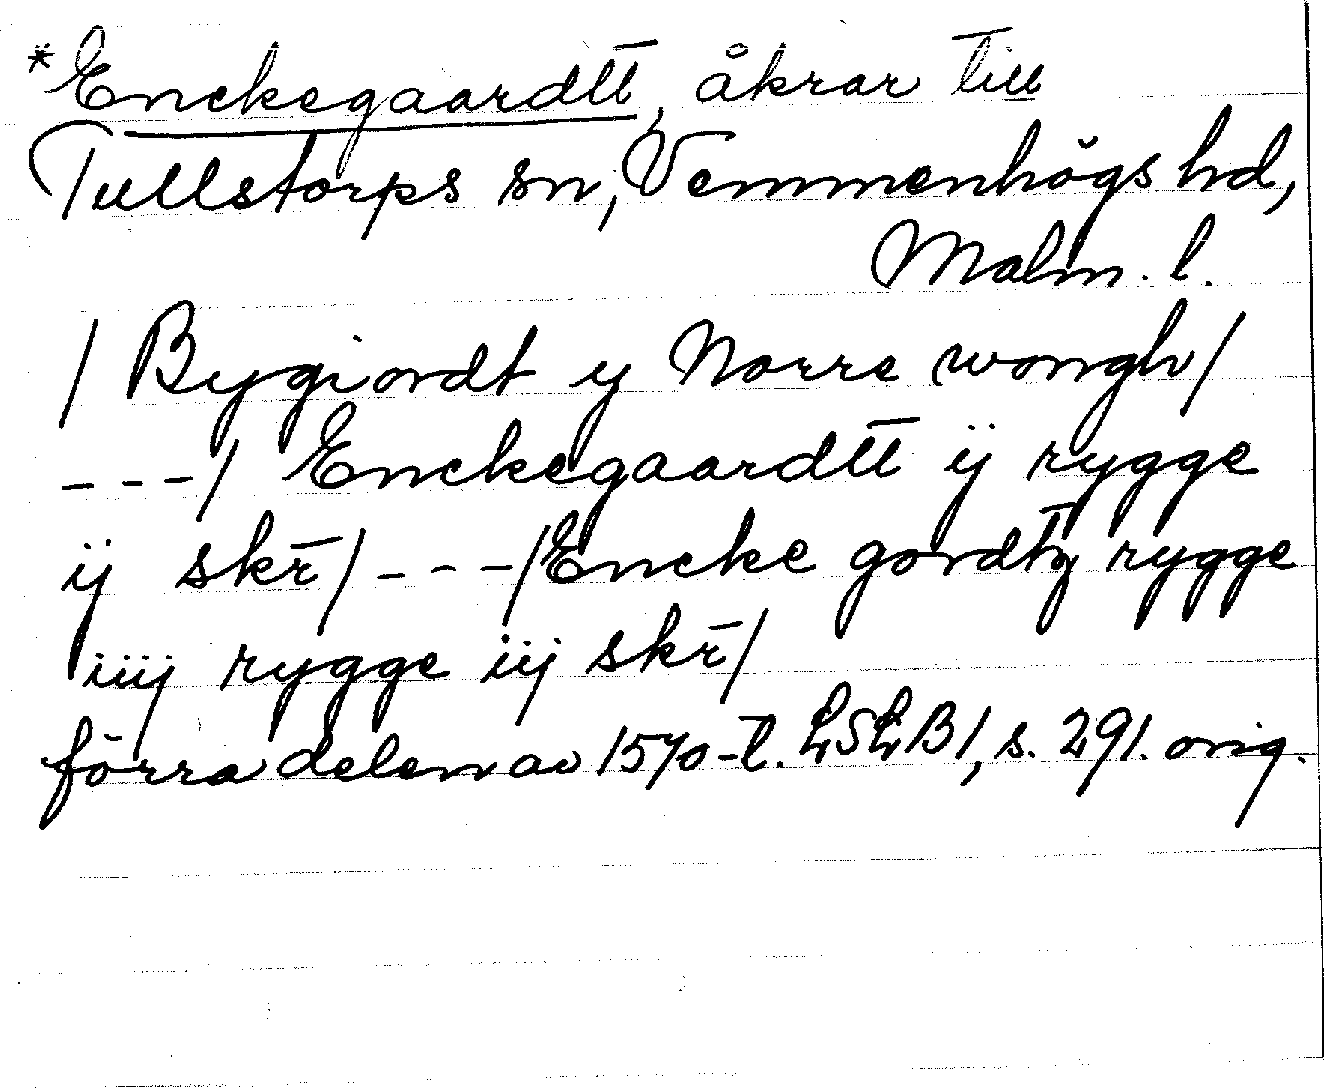 *Enckegaardtt, åkrar till
Tullstorps sn, Vemmenhögs hd,
Malm. l.
/ Bygiordt y Norre wongh/
---/ Enckegaardtt ij rygge
ij skr̄/---/Encke gordtz rygge
iiij rygge iij skr̄/
förra delen av 1570-t. LSLB1, s. 291. orig.